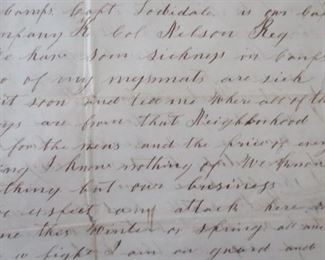 Camp, Capt. is our
Company K Col Nelson Reg
have som sickness in Camp
of my messmats are sick
it soon and tell me where all of the
are from that Neighborhood
for the mos and the price of
I know nothing of We know
thing but our busings
expect any attack here
this Winter or Spring all
to fight I am on guard and